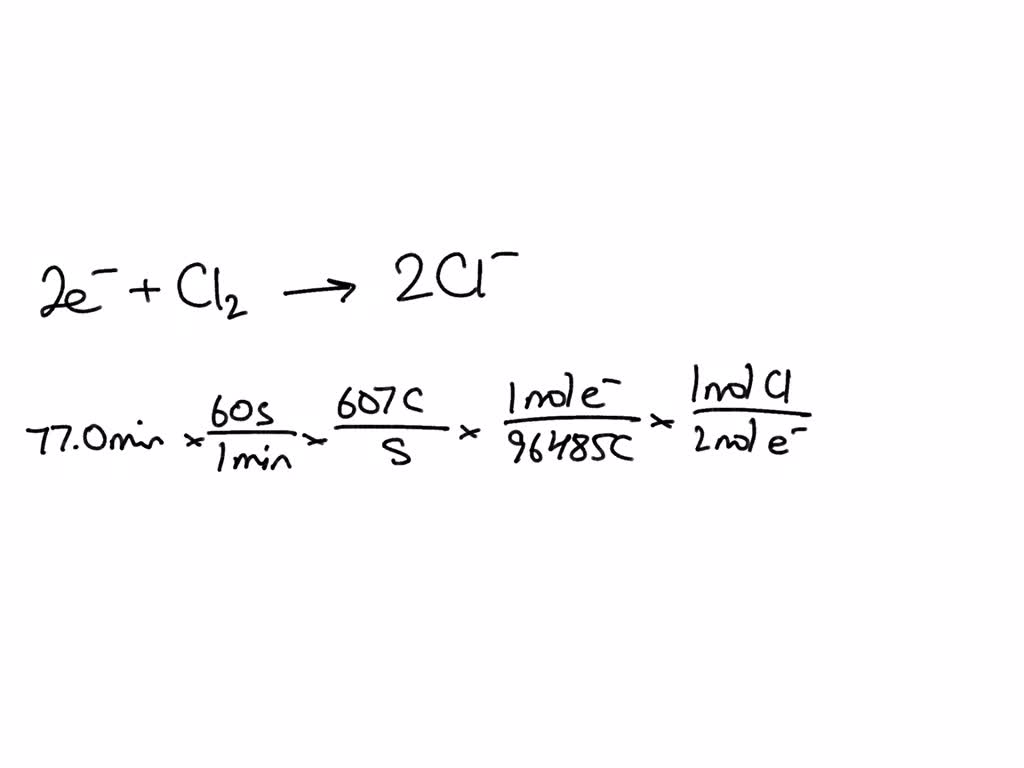 2e⁻ + Cl₂ → 2Cl⁻
77.0min × 60s/1min × 607C/S × 1mol e⁻/96485C × 1mol Cl/2mol e⁻